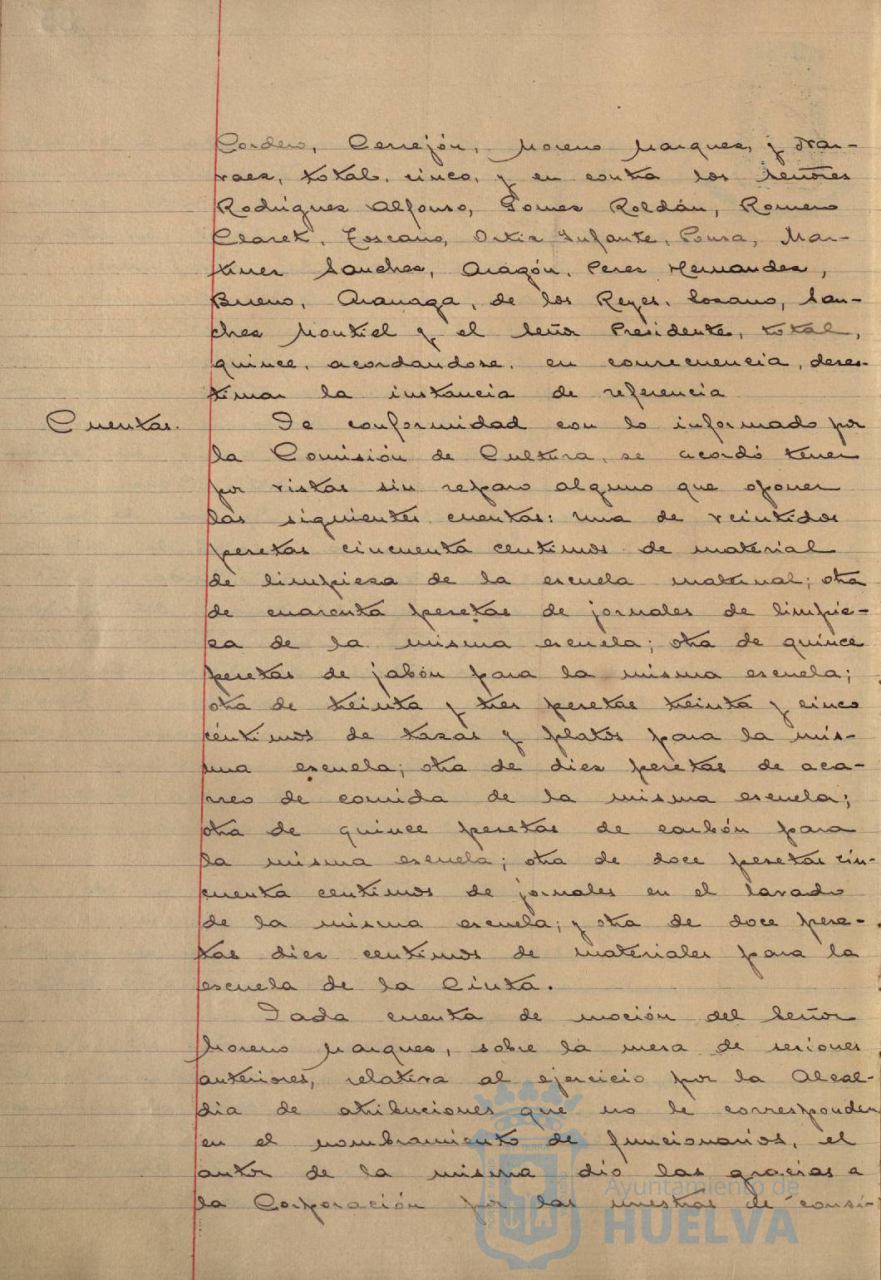 Cordero, Cerrejón, Moreno Marquez, y Nar-
vaez, total, cinco, y en contra los Señores
Rodriguez Alfonso, Gomez Roldán, Romero
Claret, Toscano, Ortiz Infante, Ponsa, Mar-
tinez Sanchez, Aragón, Perez Hernandez,
Bueno, Aranaga, de los Reyes, Lozano, San-
chez Montiel y el Señor Presidente, total,
quince, acordandose, en consecuencia, deses-
timar la instancia de referencia
Cuentas.
De conformidad con lo informado por
la Comisión de Cultura, se acordó tener
por vistas sin reparo alguno que oponer
las siguientes cuentas: una de veintidos
pesetas cincuenta centimos de material
de limpieza de la escuela maternal; otra
de cuarenta pesetas de jornales de limpie-
za de la misma escuela; otra de quince
pesetas de jabón para la misma escuela;
otra de treinta y tres pesetas treinta y cinco
céntimos de tazas y platos para la mis-
ma escuela; otra de diez pesetas de aca-
rreo de comida de la misma escuela;
otra de quince pesetas de carbón para
la misma escuela; otra de doce pesetas cin-
cuenta centimos de jornales en el lavado
de la misma escuela; y otra de doce pese-
tas diez centimos de materiales para la
escuela de la Cinta.
Dada cuenta de moción del Señor
Moreno Marquez, sobre la mesa de sesiones
anteriores, relativa al ejercicio por la Alcal-
dia de atribuciones que no le corresponden
en el nombramiento de funcionarios, el
autor de la misma dio las gracias a
la Corporación por las muestras de consi-
Ayuntamiento de
HUELVA